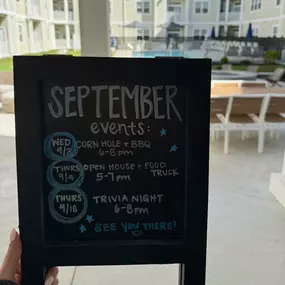 SEPTEMBER
events:
WED 9/3 CORN HOLE + BBQ
6-8pm
THURS 9/4 OPEN HOUSE + FOOD TRUCK
5-7pm
THURS 9/18 TRIVIA NIGHT
6-8pm
SEE YOU THERE!